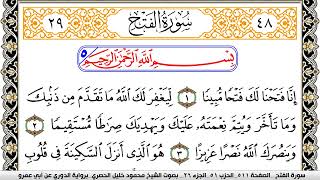 ٤٨ سُورَةُ الْفَتْحِ ٢٩
بِسْمِ اللَّهِ الرَّحْمَٰنِ الرَّحِيمِ
إِنَّا فَتَحْنَا لَكَ فَتْحًا مُّبِينًا ١ لِّيَغْفِرَ لَكَ اللَّهُ مَا تَقَدَّمَ مِن ذَنۢبِكَ
وَمَا تَأَخَّرَ وَيُتِمَّ نِعْمَتَهُ عَلَيْكَ وَيَهْدِيَكَ صِرَاطًا مُّسْتَقِيمًا ٢
وَيَنصُرَكَ اللَّهُ نَصْرًا عَزِيزًا ٣ هُوَ الَّذِي أَنزَلَ السَّكِينَةَ فِي قُلُوبِ
سورة الفتح . الصفحة ٥١١ الحزب ٥١ الجزء ٢٩ . بصوت الشيخ محمود خليل الحصري برواية الدوري عن أبي عمرو